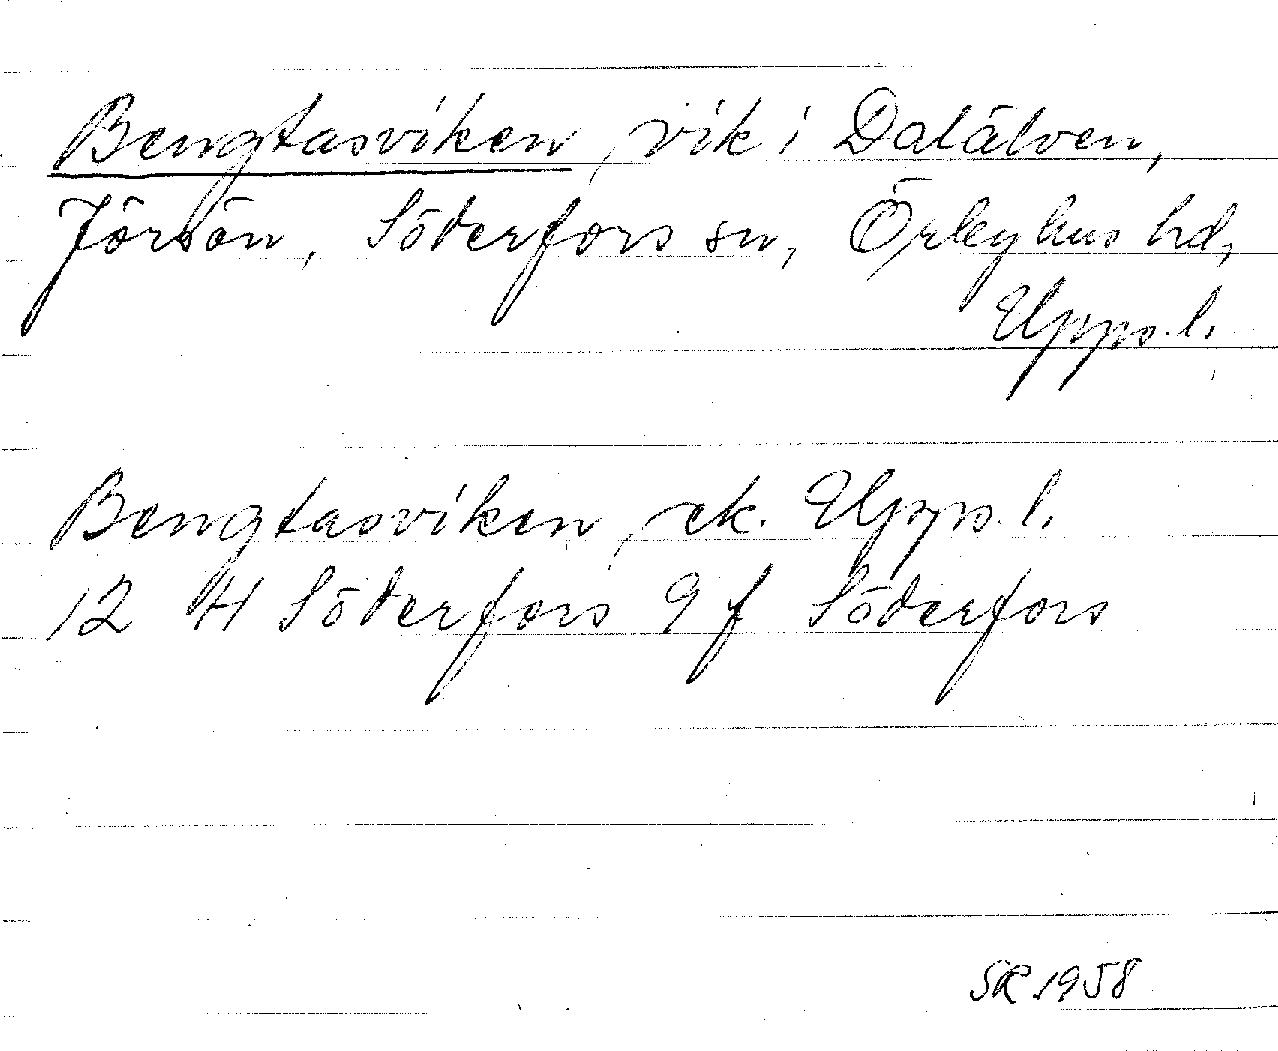 Bengtasviken, vik i Dalälven,
Jörsön, Söderfors sn, Örbyhus hd,
Upps. l.
Bengtasviken, ek. Upps. l.
12 H Söderfors 9 f Söderfors
SR 1958